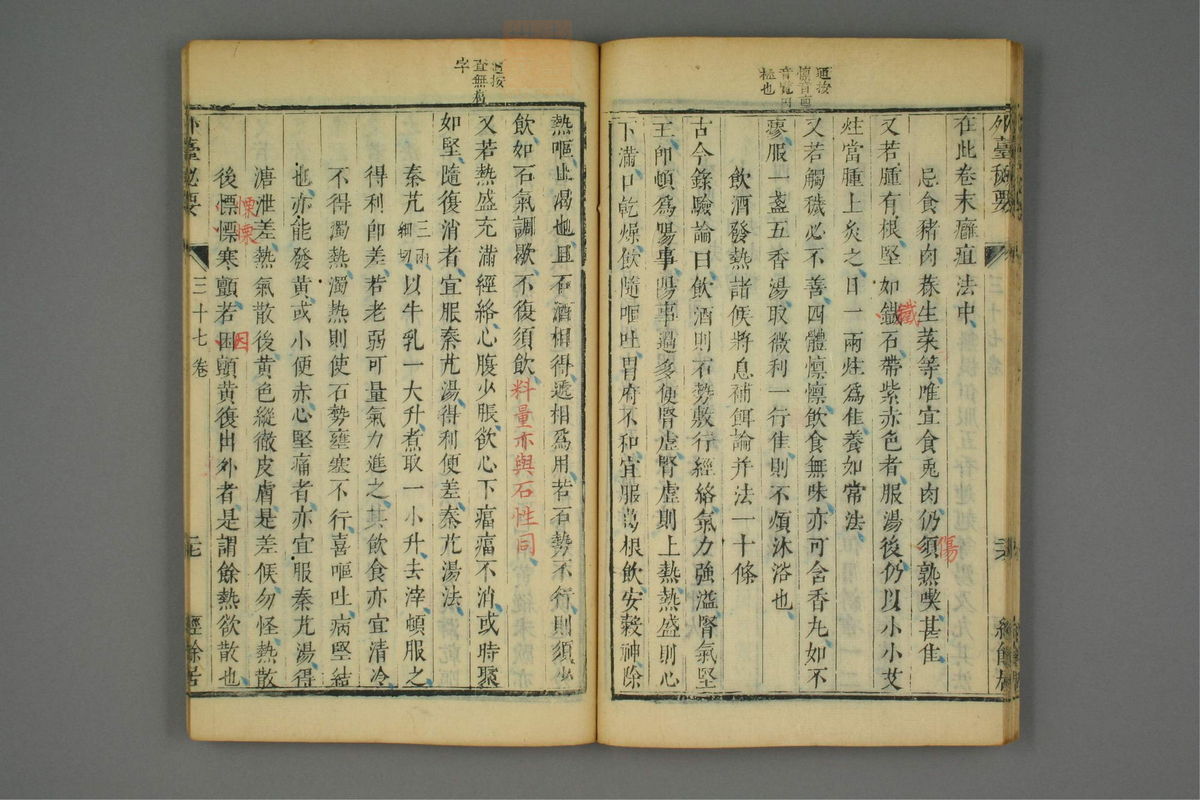 外臺秘要
卷
經餘居
在此卷末癰疽法中
忌食豬肉葵生菜等唯宜食兎肉仍須熟喫甚隹
傷
又若腫有根堅如鐵石帶紫赤色者服湯後仍以小小艾
鐵
炷當腫上灸之日一兩炷爲隹養如常法
又若觸穢必不善四體懍懍飲食無味亦可含香丸如不
瘳服一盞五香湯取微利一行隹則不煩沐浴也
飲酒發熱諸候將息補餌論并法一十條
古今錄驗論曰飲酒則石勢敷行經絡氣力強溢腎氣堅
王卽頓爲陽事陽事過多便腎虛腎虛則上熱熱盛則心
下滿口乾燥飲隨嘔吐胃府不和宜服葛根飲安穀神除
熱嘔止渴也且石酒相得遞相爲用若石勢不行則須少
飲如石氣調歇不復須飲
料量亦與石性同
又若熱盛充滿經絡心腹少脹欲心下痞痞不消或時聚
如堅隨復消者宜服秦艽湯得利便差秦艽湯法
秦艽三兩細切以牛乳一大升煮取一小升去滓頓服之
得利卽差若老弱可量氣力進之其飲食亦宜清冷
不得濁熱濁熱則使石勢壅塞不行喜嘔吐病堅結
也亦能發黃或小便赤心堅痛者亦宜服秦艽湯得
溏泄差熱氣散後黃色縱徹皮膚是差候勿怪熱散
慄慄
因
後慓慓寒顫若困顫黃復出外者是謂餘熱欲散也
外臺秘要
三十七卷
經餘居